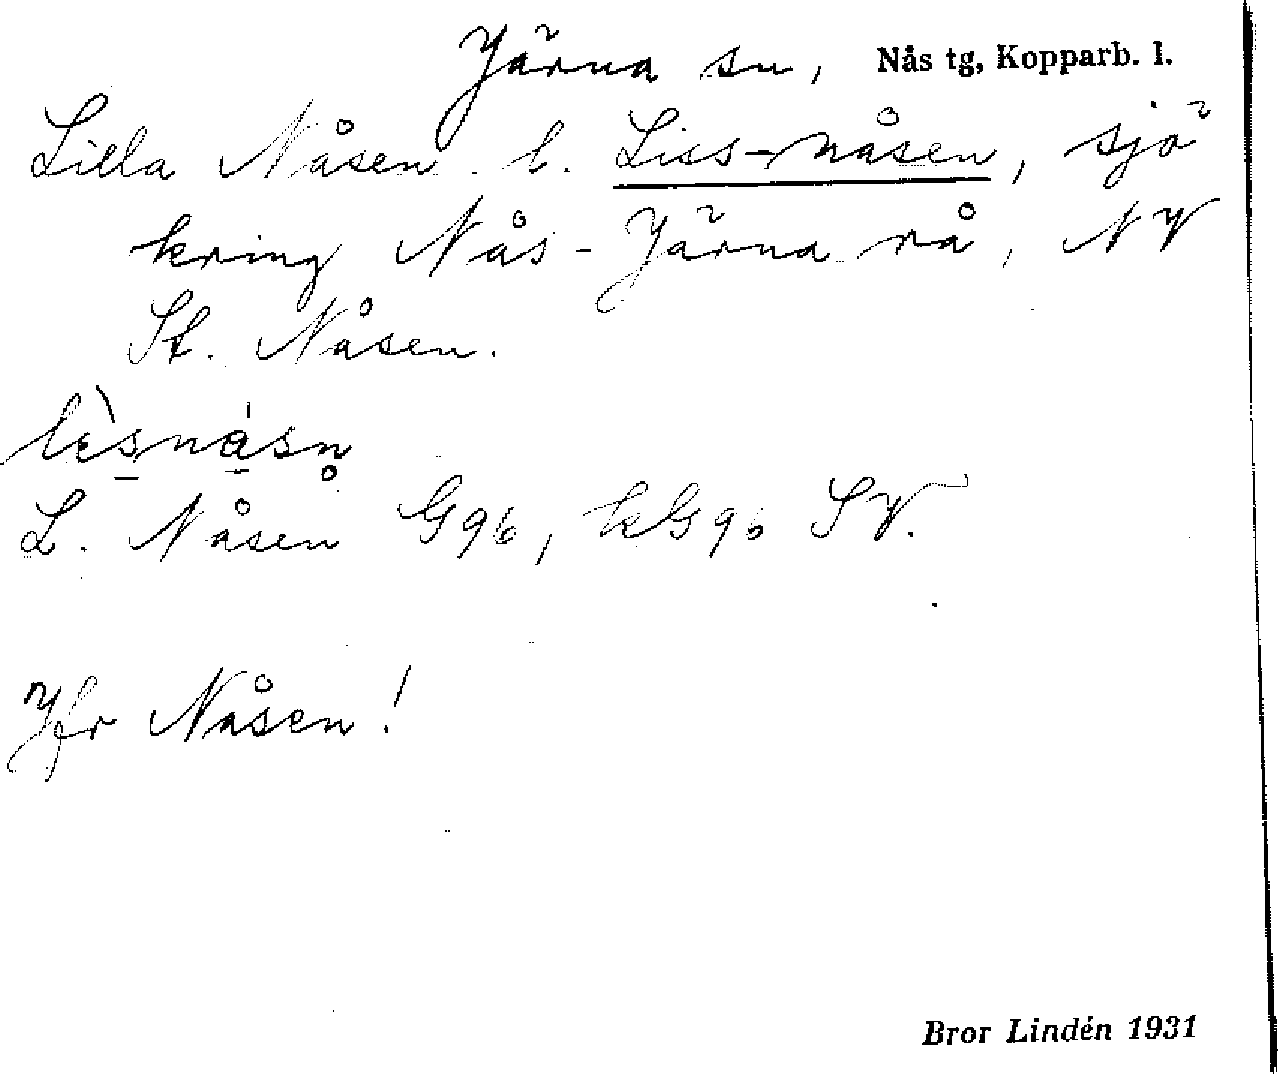 Järna sn, Nås tg, Kopparb. l.
Lilla Nåsen l. Liss-nåsen, sjö
kring Nås-Järna rå, NV
St. Nåsen.
L. Nåsen G96, kG96 SV.
Jfr Nåsen!
Bror Lindén 1931